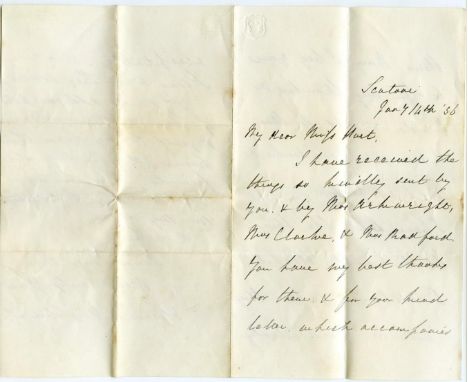 Scutari
Jany 14th '56
My dear Miss Hurt,
I have received the
things so kindly sent by
you & by Mrs Arkwright,
Mrs Clarke, & Mrs Radford.
You have my best thanks
for them & for your kind
letter which accompanied